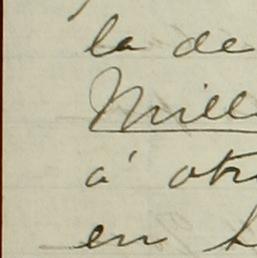 la de
Mill
á otr
en